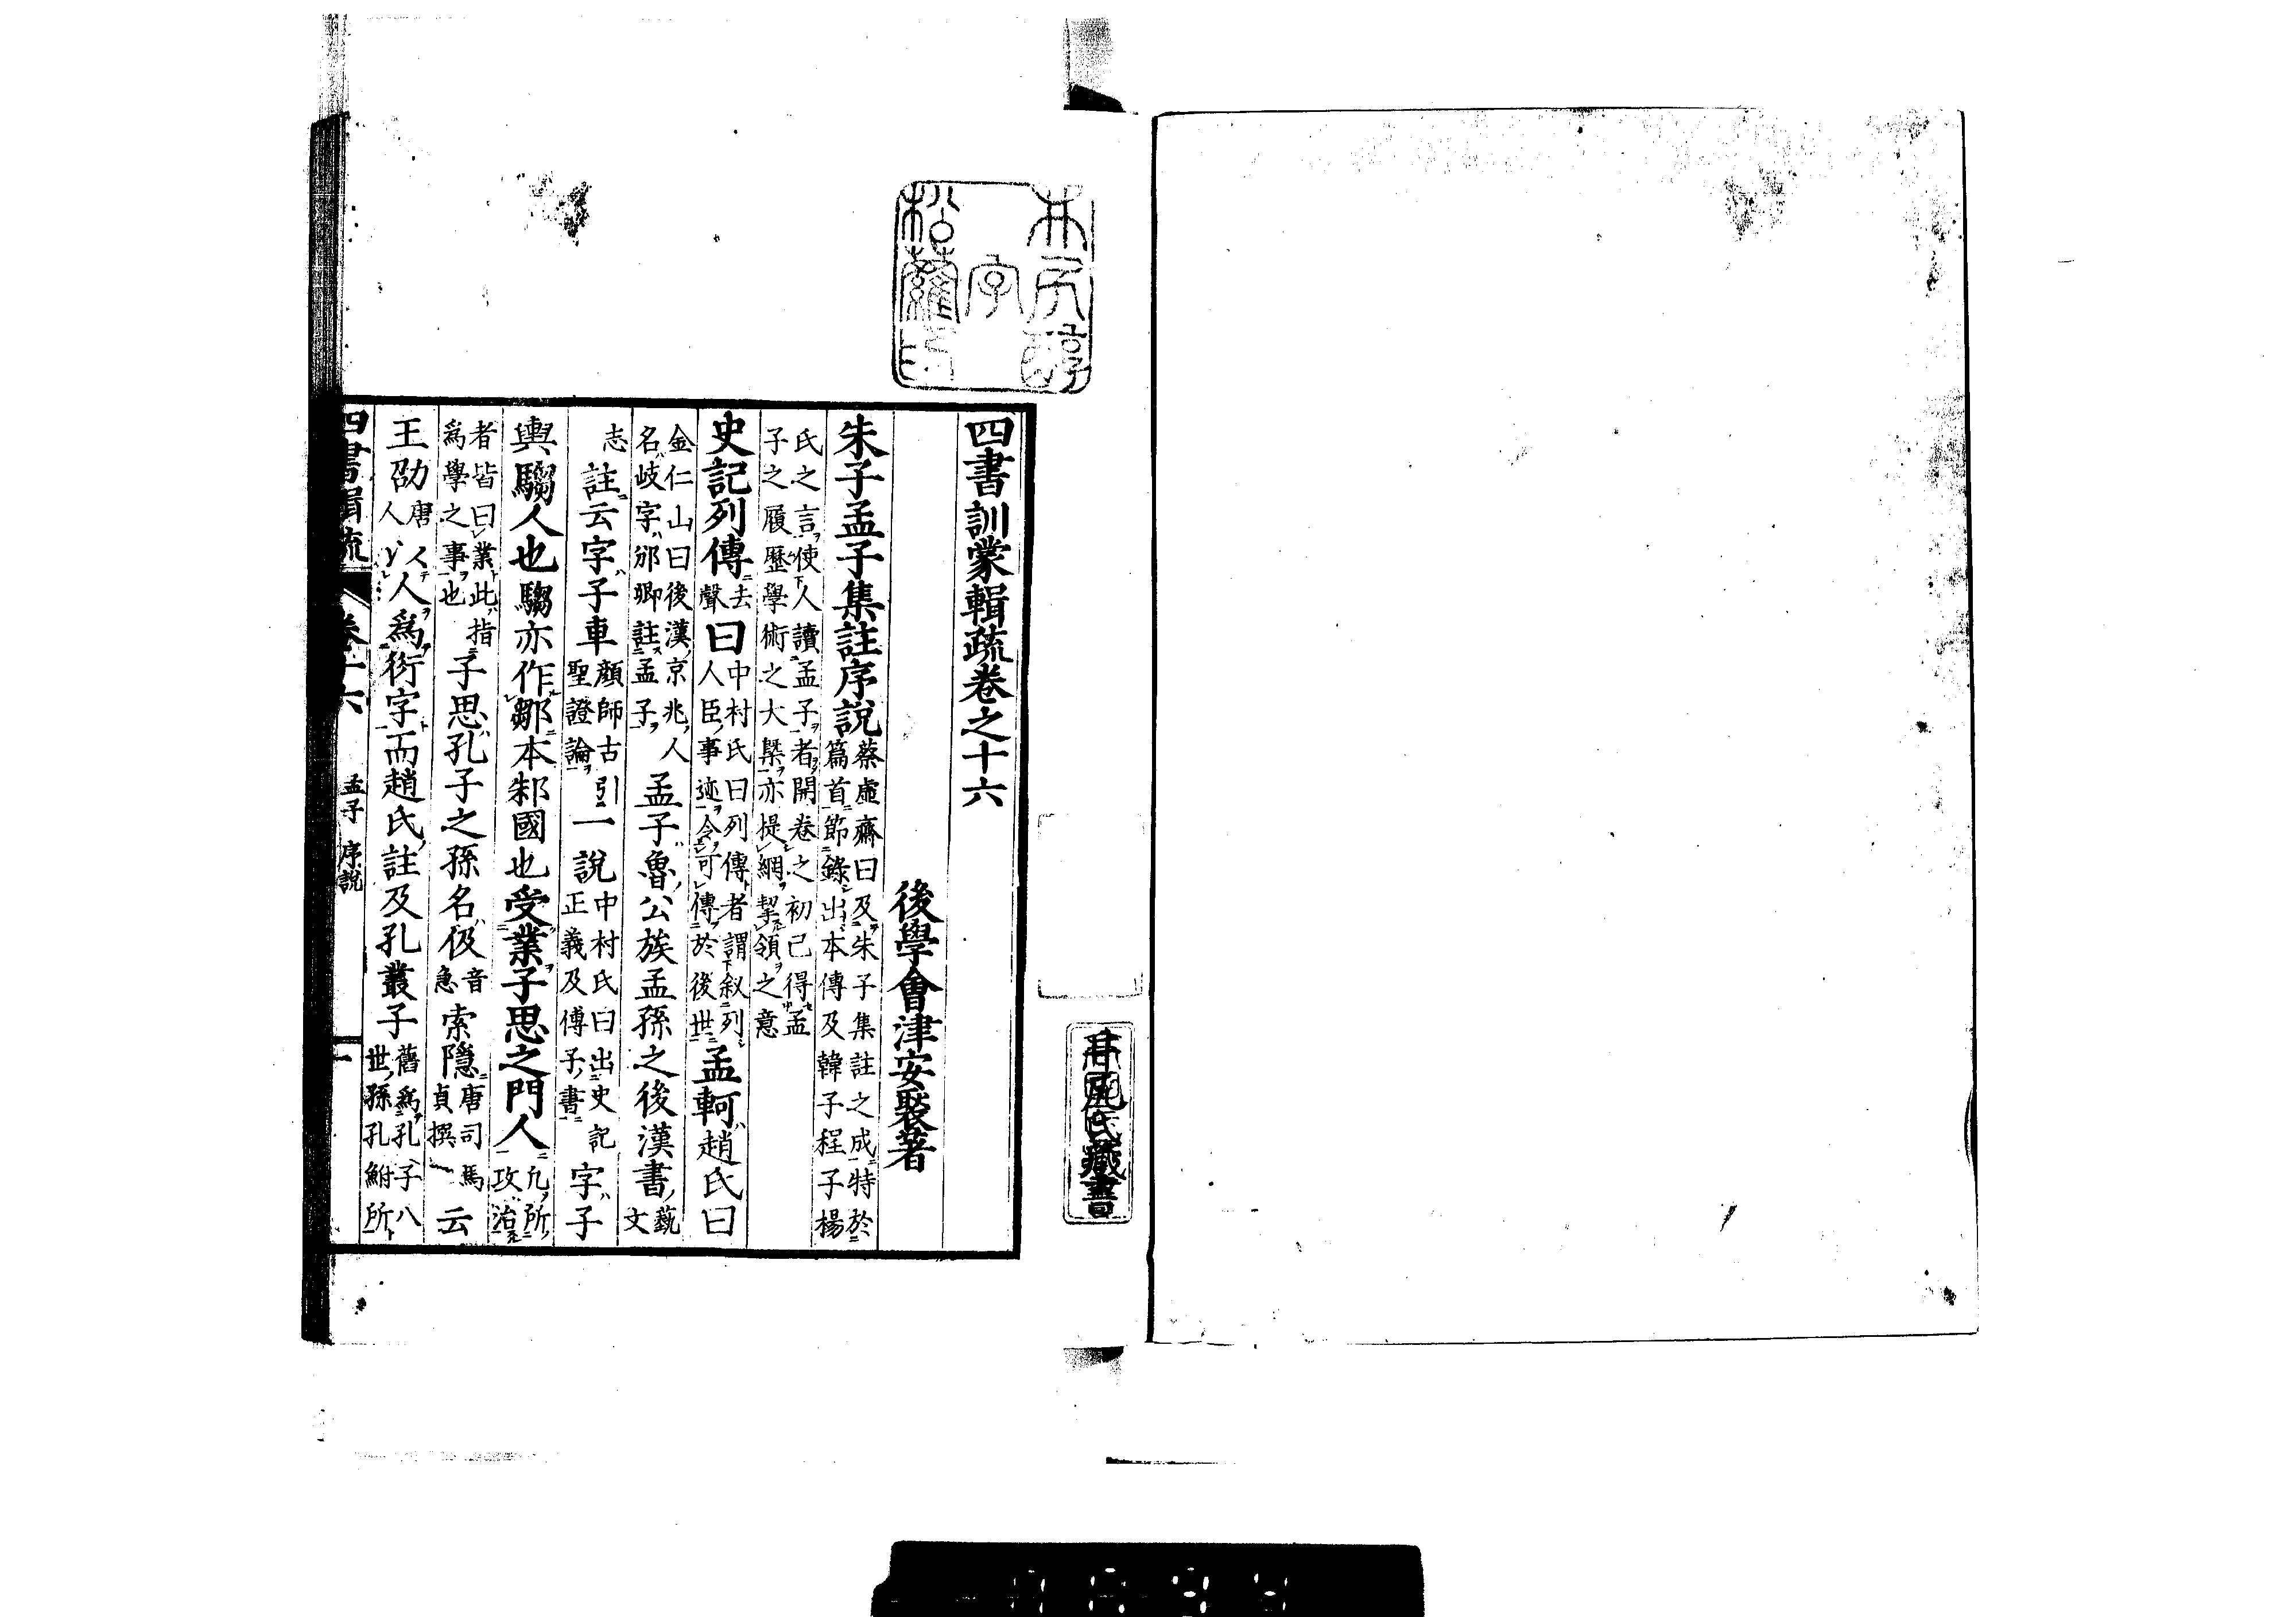 四書訓蒙輯疏卷之十六
後學會津安褧著
朱子孟子集註序説蔡虛齋曰及朱子集註之成特於篇首節錄出本傳及韓子程子楊
氏之言使人讀孟子者開卷之初已得孟子之履歷學術之大槩亦提網挈領之意
史記列傳去聲曰中村氏曰列傳者謂叙列人臣事迹令可傳於後世孟軻趙氏曰
金仁山曰後漢京兆人名岐字邠卿註孟子孟子魯公族孟孫之後漢書藝文
志註云字子車顏師古引聖證論一説中村氏曰出史記正義及傅子書字子
輿騶人也騶亦作鄒本邾國也受業子思之門人凢所攻治
者皆曰業此指爲學之事也子思孔子之孫名伋音急索隱唐司馬貞撰云
王劭唐人以人爲衍字而趙氏註及孔叢子舊爲孔子八世孫孔鮒所
四書輯疏 卷十六 孟子 序説 一
井
字
松蘿
藏書